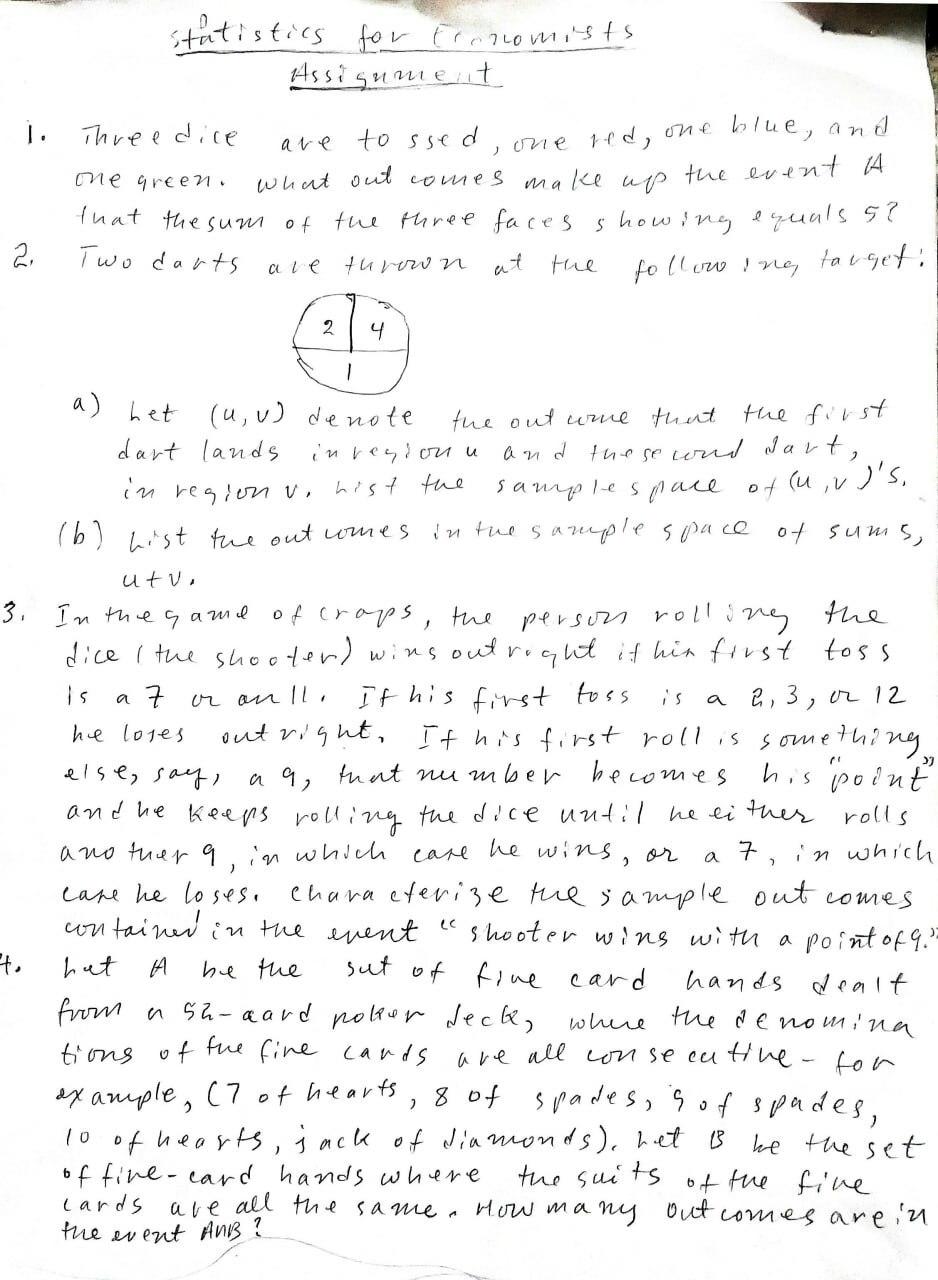 Statistics for Economists
Assignment
1. Three dice are tossed, one red, one blue, and
one green. what out comes make up the event A
that the sum of the three faces showing equals 5?
2. Two darts are thrown at the following target:
2 4
1
a) Let (u, v) denote the out come that the first
dart lands in region u and the second dart,
in region v. List the sample space of (u, v)'s.
(b) List the out comes in the sample space of sums,
u+v.
3. In the game of craps, the person rolling the
dice (the shooter) wins outright if his first toss
is a 7 or an 11. If his first toss is a 2, 3, or 12
he loses outright. If his first roll is something
else, say, a 9, that number becomes his "point"
and he keeps rolling the dice until he either rolls
another 9, in which case he wins, or a 7, in which
case he loses. Characterize the sample out comes
contained in the event "shooter wins with a point of 9."
4. Let A be the set of five card hands dealt
from a 52-card poker deck, where the denomina
tions of the five cards are all consecutive - for
example, (7 of hearts, 8 of spades, 9 of spades,
10 of hearts, jack of diamonds). Let B be the set
of five-card hands where the suits of the five
cards are all the same. How many out comes are in
the event A∩B?